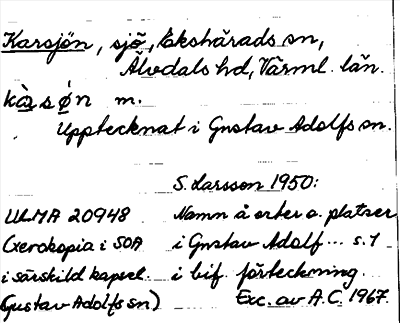 Karsjön, sjö, Ekshärads sn,
Älvdals hd, Värml. län.
kàsǿn m.
Upptecknat i Gustav Adolfs sn.
S. Larsson 1950:
ULMA 20948 Namn å orter o. platser
(Xerokopia i SOA i Gustav Adolf ... s. 1
i särskild kapsel. i bif. förteckning.
Gustav Adolfs sn) Exc. av A.C. 1967.